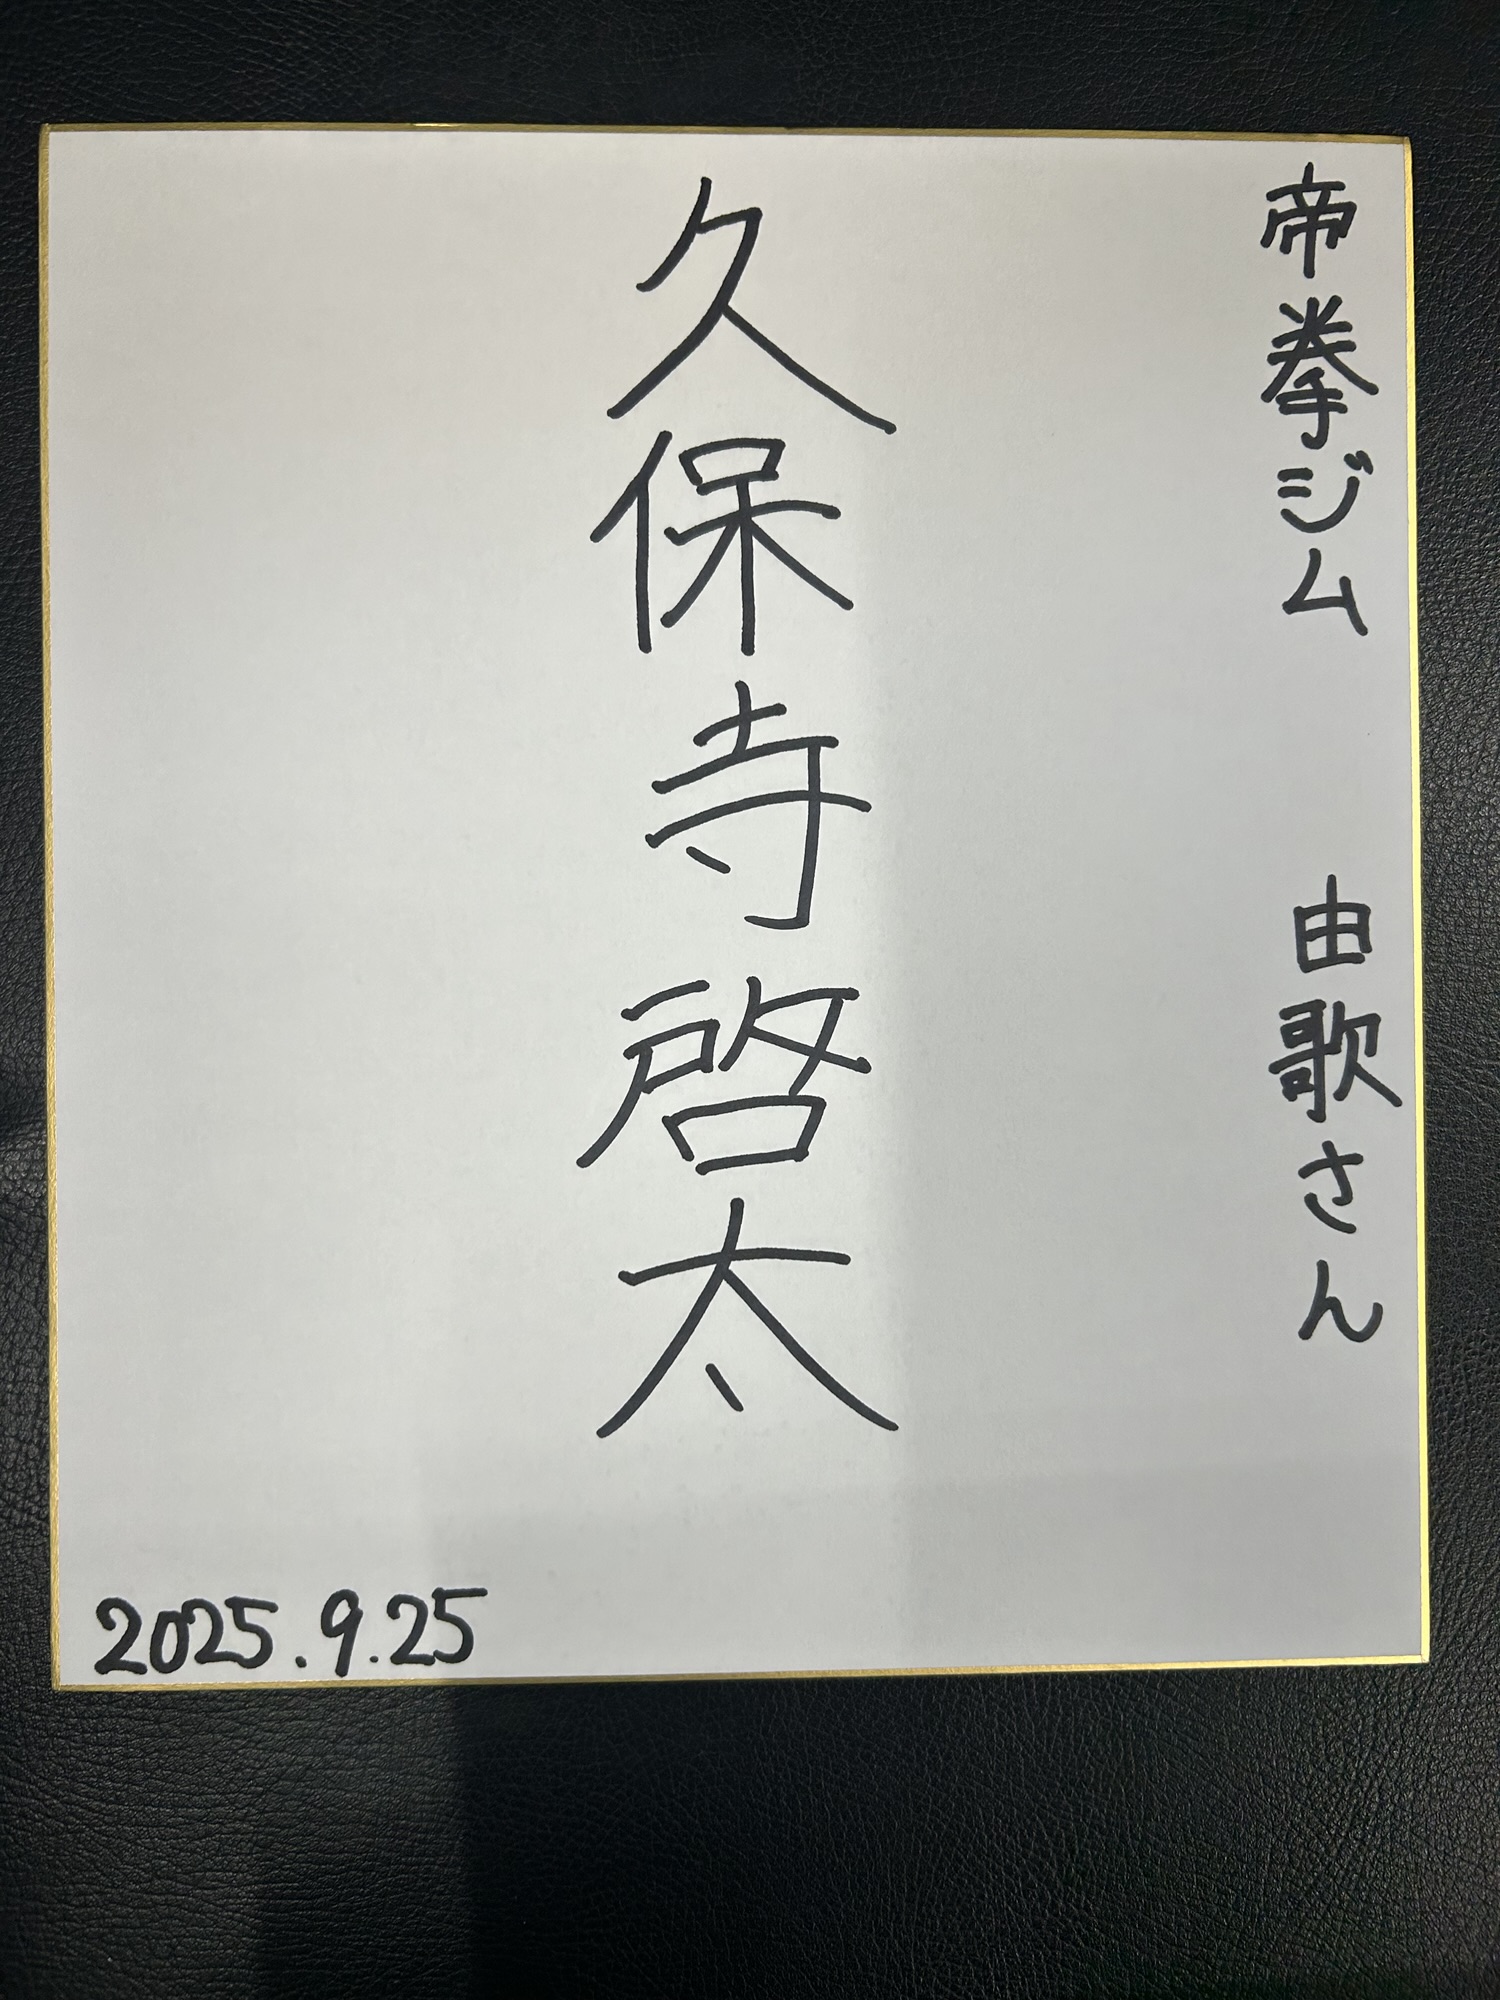 帝拳ジム 由歌さん
久保寺啓太
2025.9.25